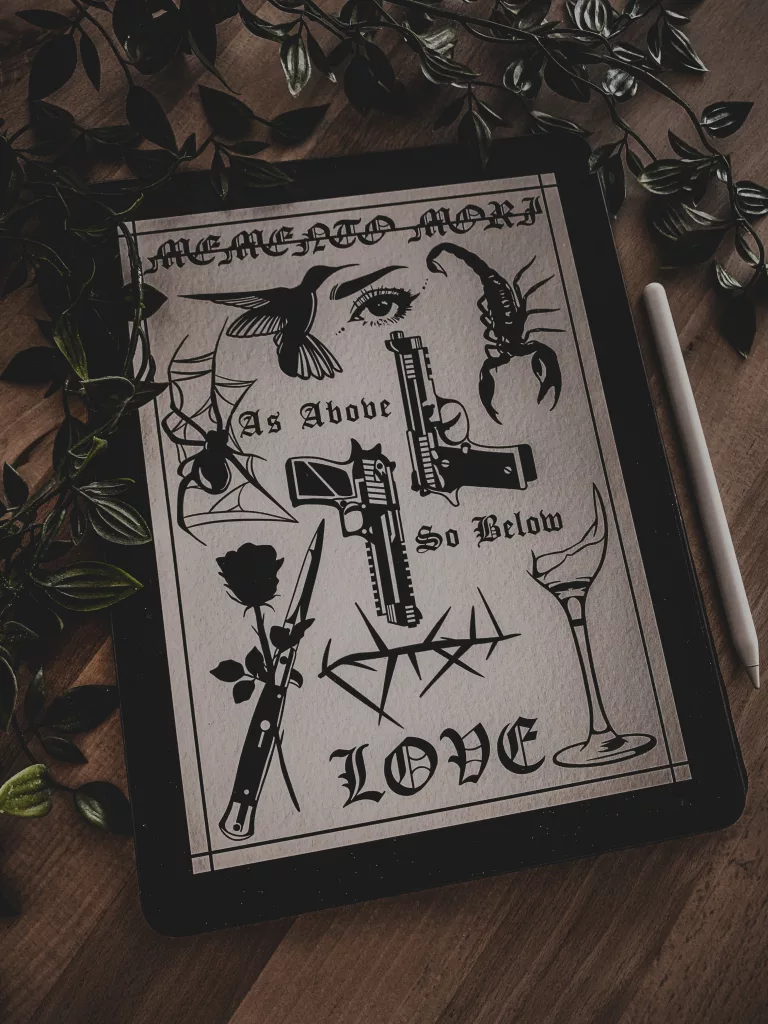 MEMENTO MORI
As Above
So Below
LOVE